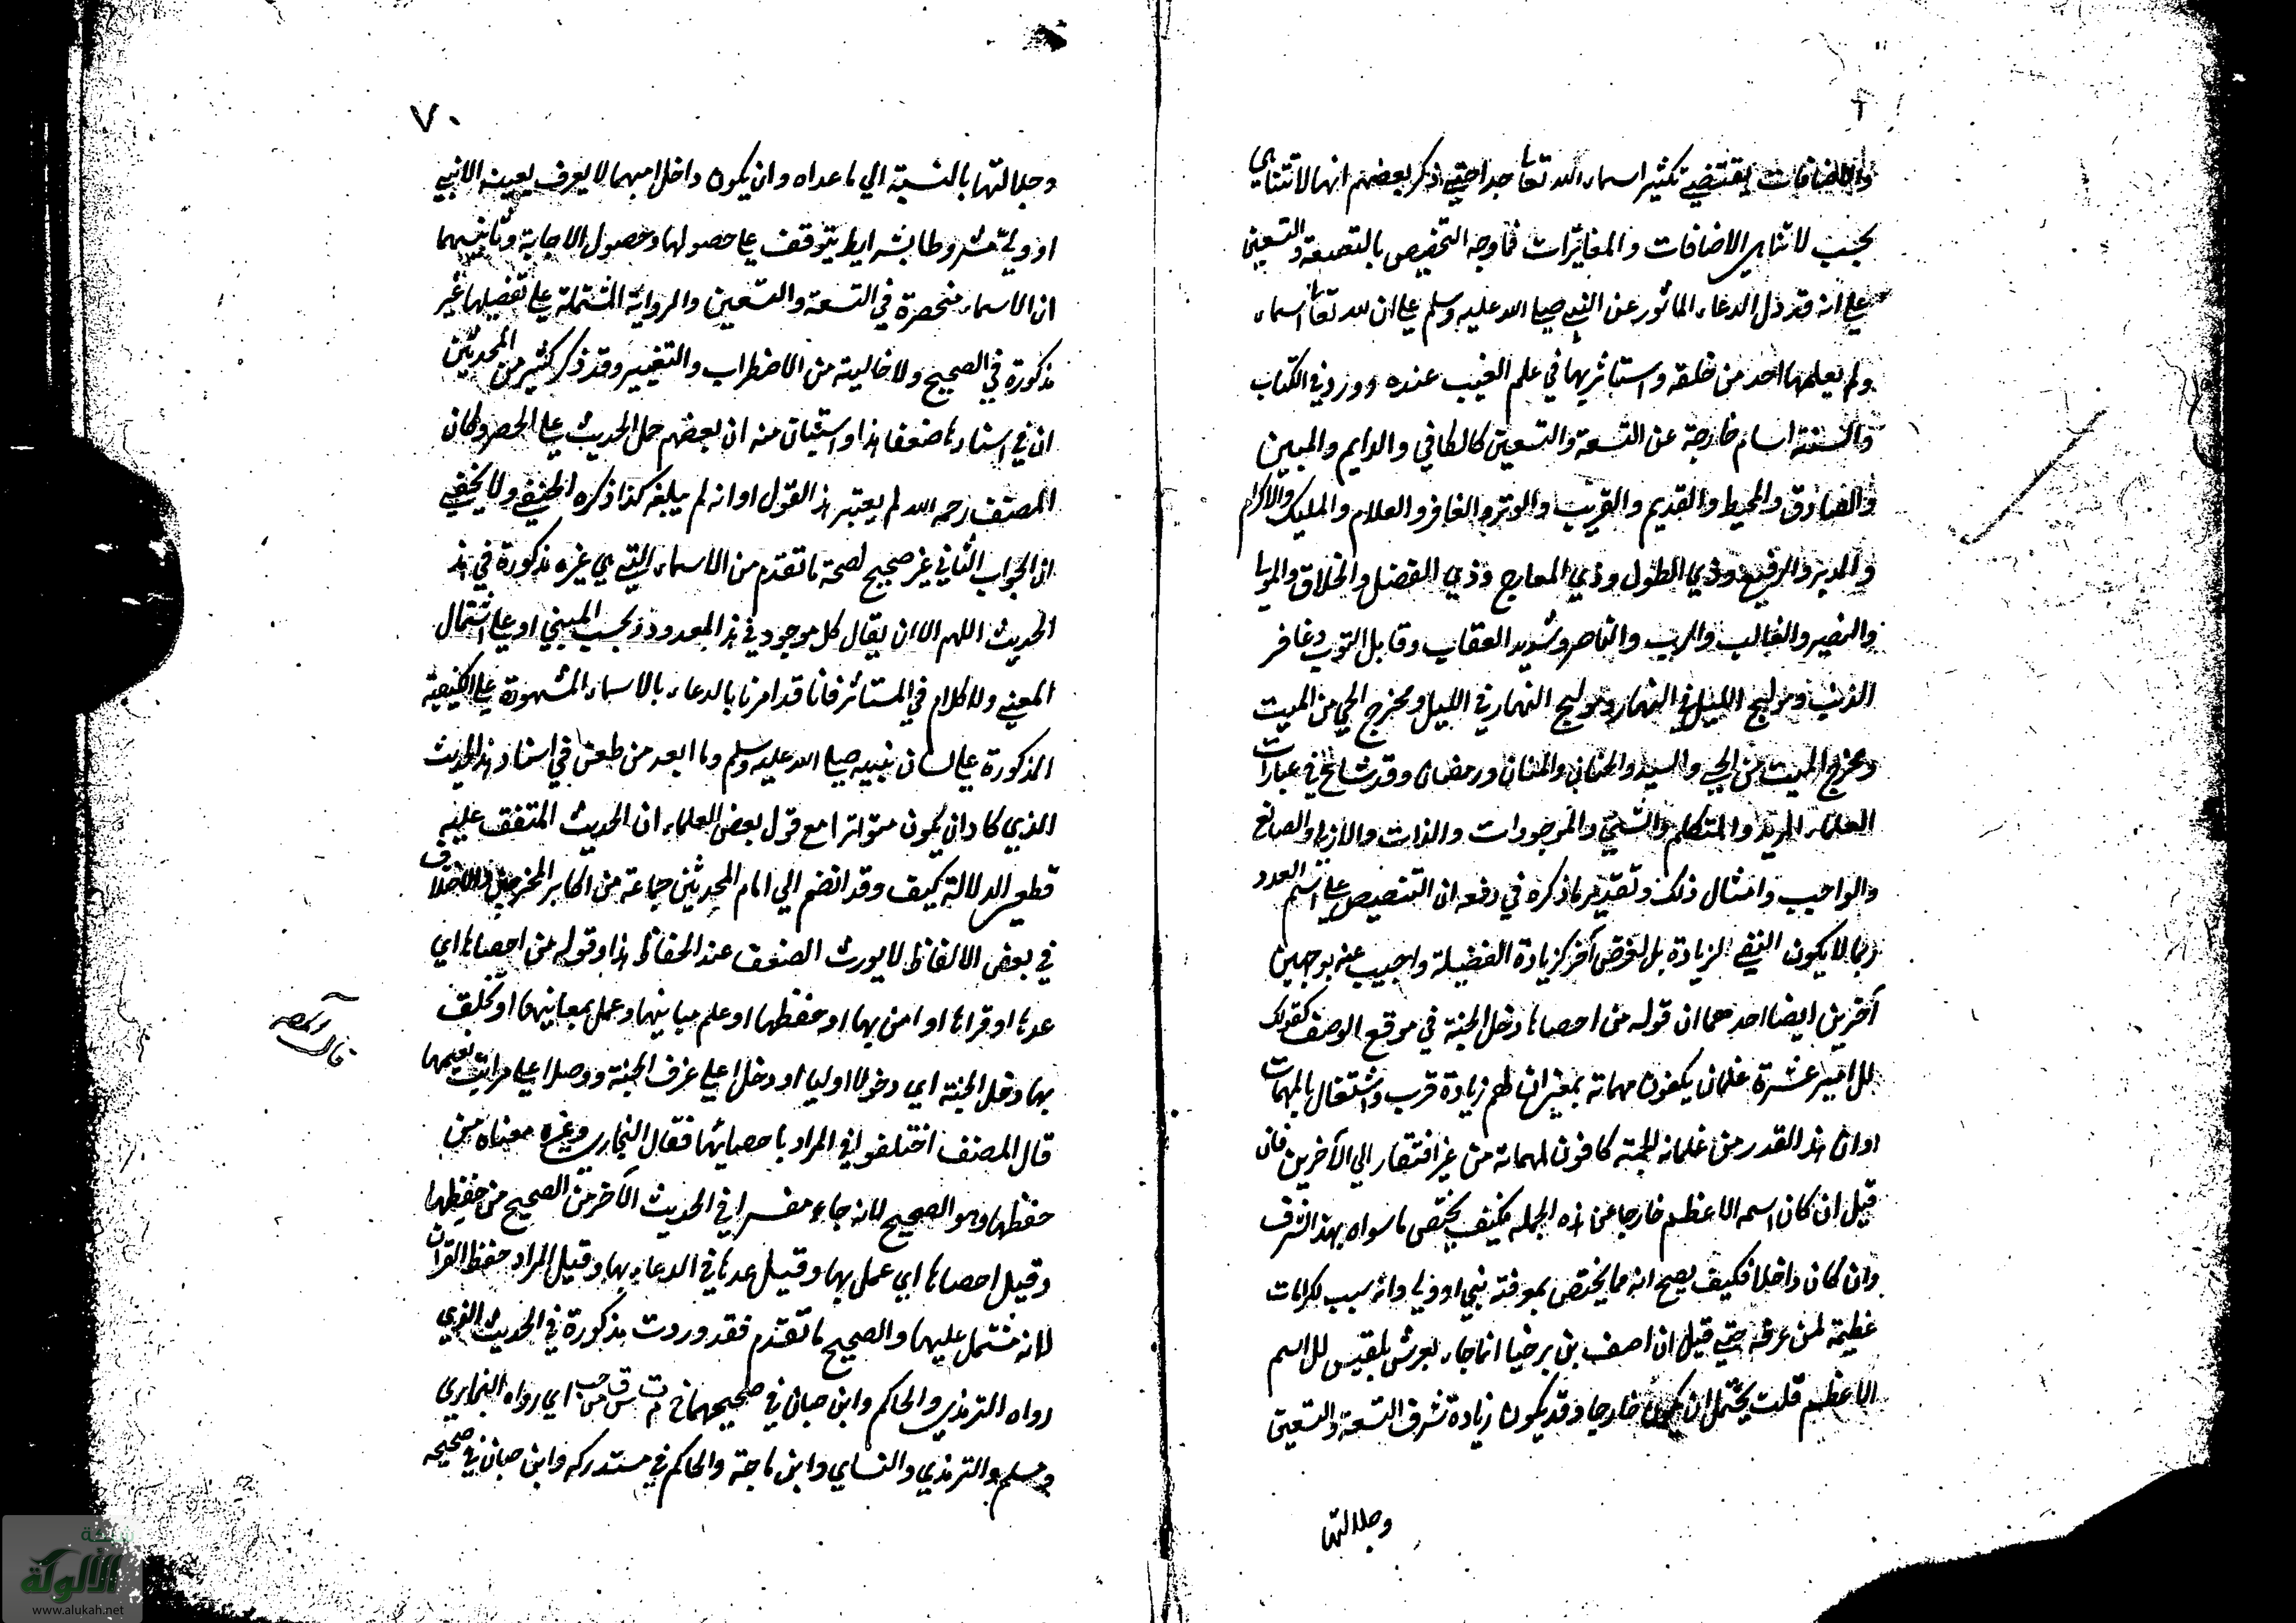 والاضافات يقتضي تكثير اسماء الله تعا جدا حتي ذكر بعضهم انها لا تتناهي
بحسب لا تناهي الاضافات والمغايرات فما وجه التخصيص بالتسعة والتسعين
علي انه قد دل الدعاء الماثور عن النبي صلي الله عليه وسلم علي ان لله تعا اسماء
ولم يعلمها احد من خلقه واستاثر بها في علم الغيب عنده وورد في الكتاب
والسنة اسام خارجة عن التسعة والتسعين كالكافي والدايم والمبين
والصادق والمحيط والقديم والقريب والوتر والغافر والعلام والمليك والاكرام
والمدبر والرفيع وذي الطول وذي المعارج وذي الفضل والخلاق والمولي
والنصير والغالب والرب والناصر وشديد العقاب وقابل التوب وغافر
الذنب ومولج الليل في النهار ومولج النهار في الليل ومخرج الحي من الميت
ومخرج الميت من الحي والسيد والحنان والمنان ورمضان وقد شاع في عبارات
العلماء المريد والمتكلم والشئ والموجودات والذات والازلي والصانع
والواجب وامثال ذلك وتقدير ما ذكره في دفعه ان التنصيص علي اسم العدد
ربما لا يكون لنفي الزيادة بل لغرض آخر كزيادة الفضيلة واجيب عنه بوجهين
آخرين ايضا احدهما ان قوله من احصاها دخل الجنة في موقع الوصف كقولك
للامير عشرة غلمان يكفون مهماته بمعني ان لهم زيادة قرب واشتغال بالمهمات
او ان هذا القدر من غلمانه الجمة كافون لمهماته من غير افتقار الي الآخرين فان
قيل ان كان اسمه الاعظم خارجا عن هذه الجملة فكيف يختص ما سواه بهذا الشرف
وان كان داخلا فكيف يصح انه مما يختص بمعرفته نبي او ولي وانه سبب لكرامات
عظيمة لمن عرفه حتي قيل ان اصف بن برخيا انما جاء بعرش بلقيس للاسم
الاعظم قلت يحتمل ان يكون خارجا وقد يكون زيادة شرف التسعة والتسعين
وجلالتها
٧٠
وجلالتها بالنسبة الي ما عداه وان يكون داخلا مبهما لا يعرف بعينه الا نبي
او ولي مشروطا بشرايط يتوقف علي حصولها وحصول الاجابة وثانيهما
ان الاسماء منحصرة في التسعة والتسعين والرواية المشتملة علي تفصيلها غير
مذكورة في الصحيح ولا خالية من الاضطراب والتغيير وقد ذكر كثير من المحدثين
ان في اسنادها ضعفا هذا واستبان منه ان بعضهم حمل الحديث علي الحصر وكان
المصنف رحمه الله لم يعتبر هذا القول او انه لم يبلغه كذا ذكره الحنفي ولا يخفي
ان الجواب الثاني غير صحيح لصحة ما تقدم من الاسماء التي هي غيره مذكورة في هذا
الحديث اللهم الا ان يقال كل موجود في هذا المعدود بحسب المبني او علي اشتمال
المعني ولا كلام في المستاثر فانا قد امرنا بالدعاء بالاسماء المشهورة علي الكيفية
المذكورة علي لسان نبيه صلي الله عليه وسلم وما ابعد من طعن في اسناد هذا الحديث
الذي كاد ان يكون متواترا مع قول بعض العلماء ان الحديث المتفق عليه
قطعي الدلالة كيف وقد انضم الي امام المحدثين جماعة من اكابر المخرجين والاختلاف
في بعض الالفاظ لا يورث الضعف عند الحفاظ هذا وقوله من احصاها اي
عدها او قراها او امن بها او حفظها او علم مبانيها وعمل بمعانيها او تخلق
بها دخل الجنة اي دخولا اوليا او دخل اعلي غرف الجنة ووصل اعلي مراتب نعيمها
قال المصنف اختلفوا في المراد باحصائها فقال البخاري وغيره معناه من
حفظها وهو الصحيح لانه جاء مفسرا في الحديث الآخر من الصحيح من حفظها
وقيل احصاها اي عمل بها وقيل عدها في الدعاء بها وقيل المراد حفظ القرآن
لانه مشتمل عليها والصحيح ما تقدم فقد وردت مذكورة في الحديث الذي
رواه الترمذي والحاكم وابن حبان في صحيحهما خ م ت س ق مس حب اي رواه البخاري
ومسلم والترمذي والنساي وابن ماجة والحاكم في مستدركه وابن حبان في صحيحه
شبكة
الألوكة
www.alukah.net